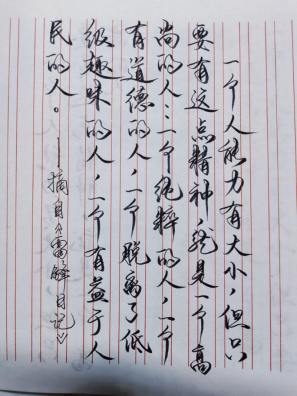 一个人能力有大小，但只
要有这点精神，就是一个高
尚的人：一个纯粹的人，一个
有道德的人，一个脱离了低
级趣味的人，一个有益于人
民的人。—摘自《雷锋日记》